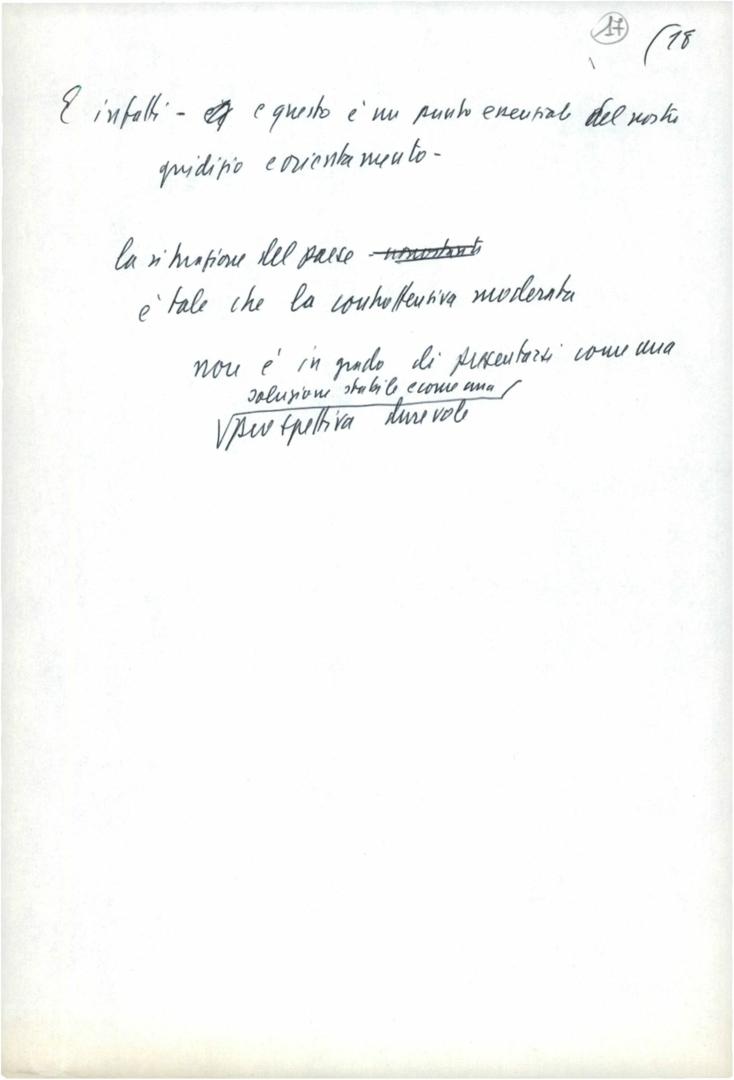 17 (18
E infatti - e questo è un punto essenziale del nostro
giudizio e orientamento -
la situazione del paese - nonostante
è tale che la controffensiva moderata
non è in grado di presentarsi come una
soluzione stabile e come una
prospettiva durevole